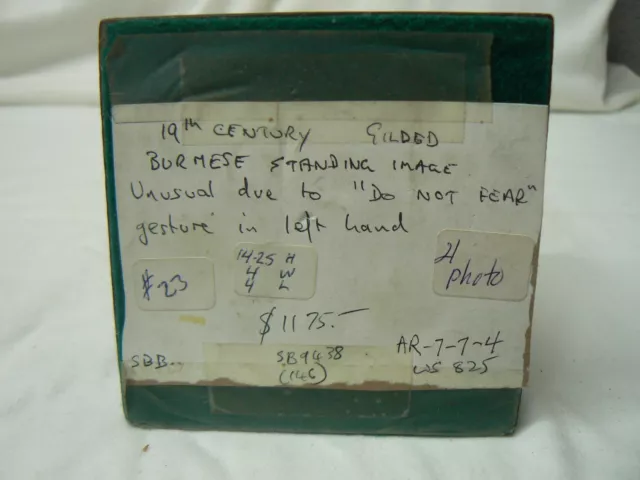 19th CENTURY GILDED
BURMESE STANDING IMAGE
Unusual due to "DO NOT FEAR"
gesture in left hand
$23
14-25 H
4 W
4 L
4
photo
$1175.-
SBB..
SB9438
(146)
AR-7-7-4
WS 825